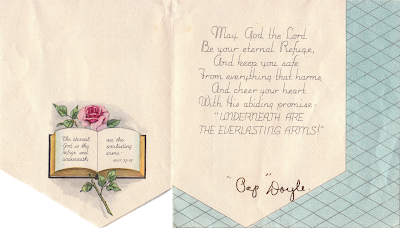 The eternal
God is thy
refuge and
underneath
are the
everlasting
arms.
May God the Lord
Be your eternal Refuge,
And keep you safe
From everything that harms,
And cheer your heart
With His abiding promise:
"UNDERNEATH ARE
THE EVERLASTING ARMS!"
"Pap" Doyle.